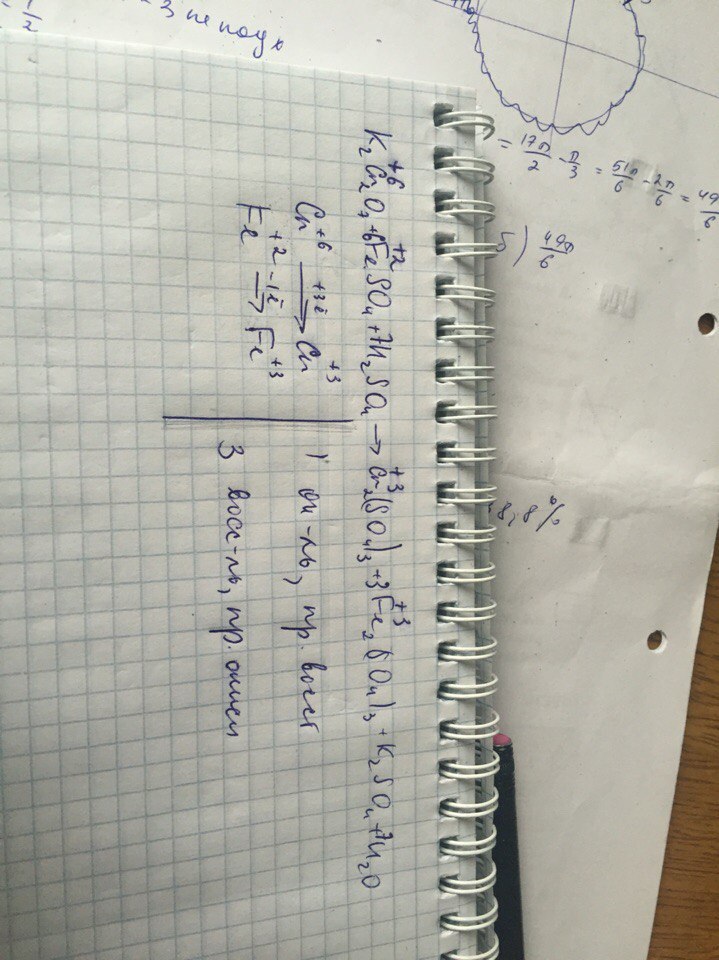 3 не подх
1/2
= 17π/2 - π/3 = 51π/6 - 2π/6 = 49/6
б) 49π/6
8,8%
K₂Cr₂⁺⁶O₇ + 6Fe⁺²SO₄ + 7H₂SO₄ → Cr₂⁺³(SO₄)₃ + 3Fe₂⁺³(SO₄)₃ + K₂SO₄ + 7H₂O
Cr⁺⁶ +3ē→ Cr⁺³ | 1 ок-ль, пр. восст
Fe⁺² -1ē→ Fe⁺³ | 3 восс-ль, пр. окисл